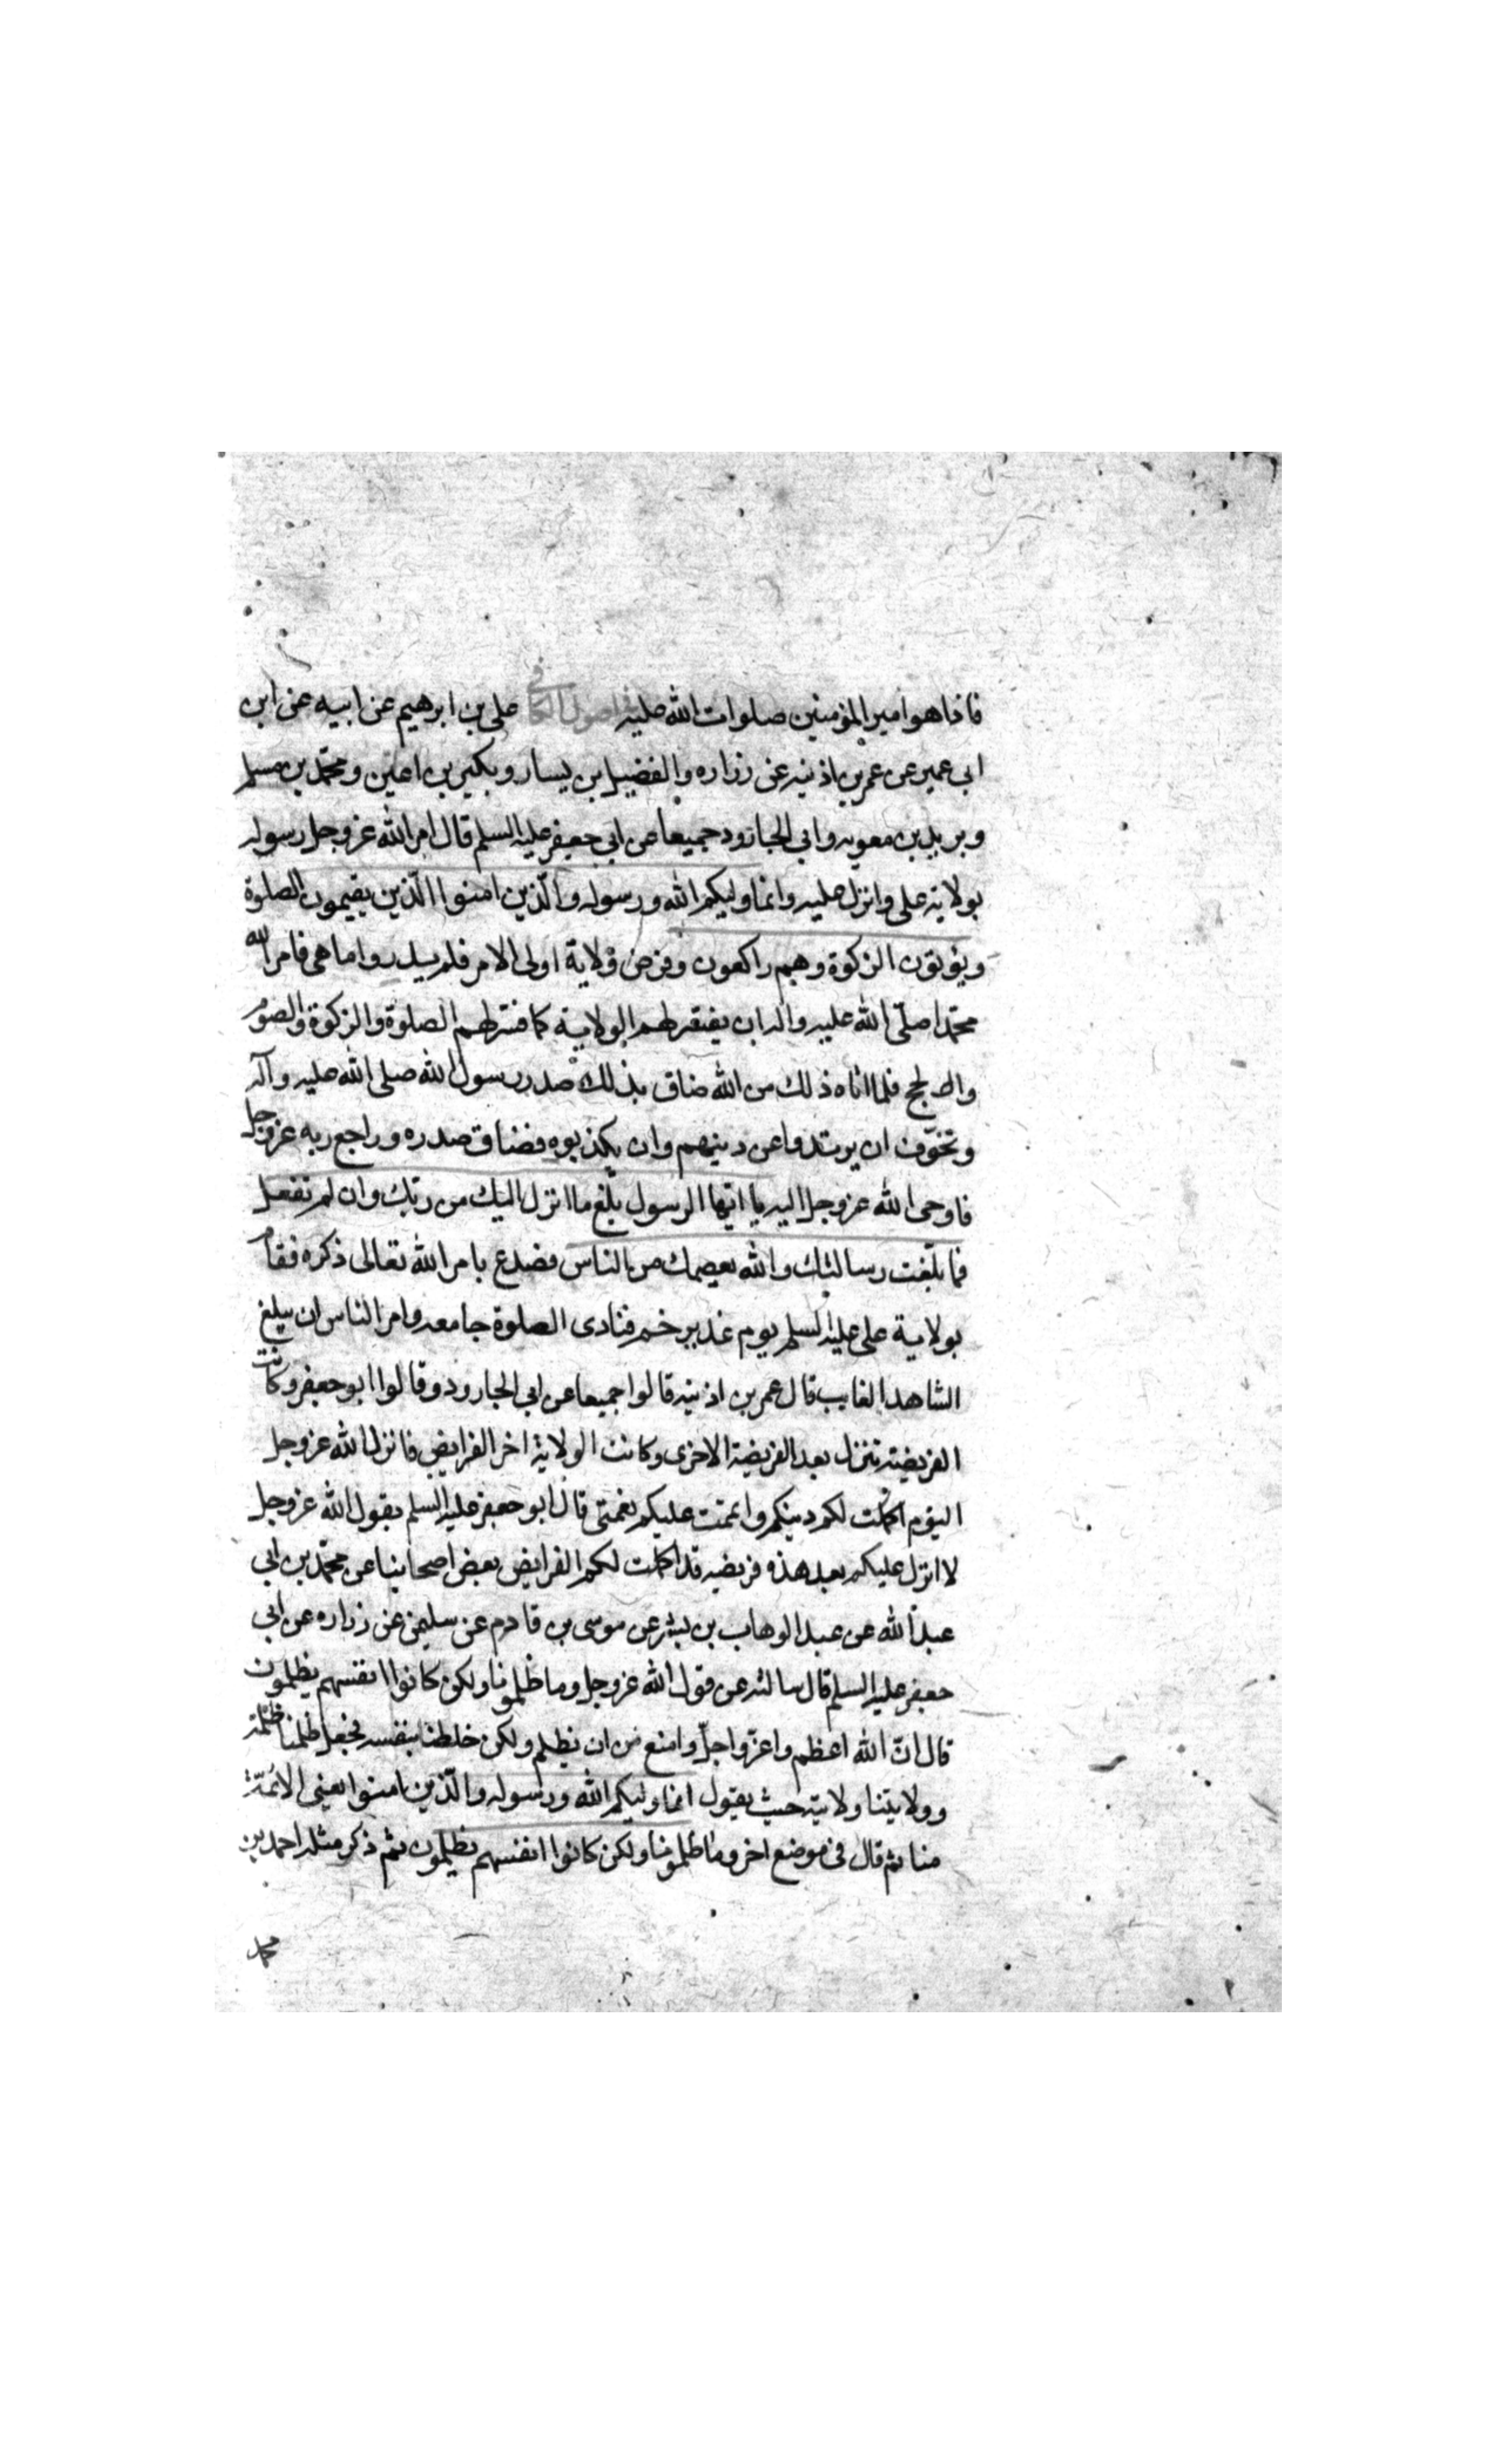 فاذا هو امير المؤمنين صلوات الله عليه في اصول الكافي علي بن ابرهيم عن ابيه عن ابن
ابي عمير عن عمر بن اذنيه عن زراره والفضيل بن يسار وبكير بن اعين ومحمّد بن مسلم
وبريد بن معويه وابي الجارود جميعا عن ابي جعفر عليه السلم قال امر الله عز وجل رسوله
بولاية علي وانزل عليه وانما وليكم الله ورسوله والّذين امنوا الّذين يقيمون الصلوة
ويؤتون الزكوة وهم راكعون وفرض ولاية اولى الامر فلم يدروا ما هي فامر الله
محمّدا صلّى الله عليه واله ان يفسّر لهم الولاية كما فسّر لهم الصلوة والزكوة والصوم
والحج فلما اتاه ذلك من الله ضاق بذلك صدر رسول الله صلى الله عليه وآله
وتخوّف ان يرتدوا عن دينهم وان يكذبوه فضاق صدره وراجع ربه عز وجل
فاوحى الله عز وجل اليه يا ايها الرسول بلّغ ما انزل اليك من ربّك وان لم تفعل
فما بلّغت رسالتك والله يعصمك من الناس فصدع بامر الله تعالى ذكره فقام
بولاية علي عليه السلم يوم غدير خم فنادى الصلوة جامعه وامر الناس ان يبلغ
الشاهد الغايب قال عمر بن اذنيه قالوا جميعا عن ابي الجارود وقالوا ابو جعفر وكانت
الفريضة تنزل بعد الفريضة الاخرى وكانت الولاية اخر الفرايض فانزل الله عز وجل
اليوم اكملت لكم دينكم واتممت عليكم نعمتى قال ابو جعفر عليه السلم يقول الله عز وجل
لا انزل عليكم بعد هذه فريضه قد اكملت لكم الفرايض بعض اصحابنا عن محمّد بن ابي
عبد الله عن عبد الوهاب بن بشر عن موسى بن قادم عن سليمن عن زراره عن ابي
جعفر عليه السلم قال سالته عن قول الله عز وجل وما ظلمونا ولكن كانوا انفسهم يظلمون
قال انّ الله اعظم واعزّ واجلّ وامنع من ان يظلم ولكن خلطنا بنفسه فجعل ظلمنا ظلمه
وولايتنا ولايته حيث يقول انما وليكم الله ورسوله والّذين امنوا يعنى الائمّة
منا ثم قال في موضع اخر وما ظلمونا ولكن كانوا انفسهم يظلمون ثم ذكر مثله احمد بن
محمد